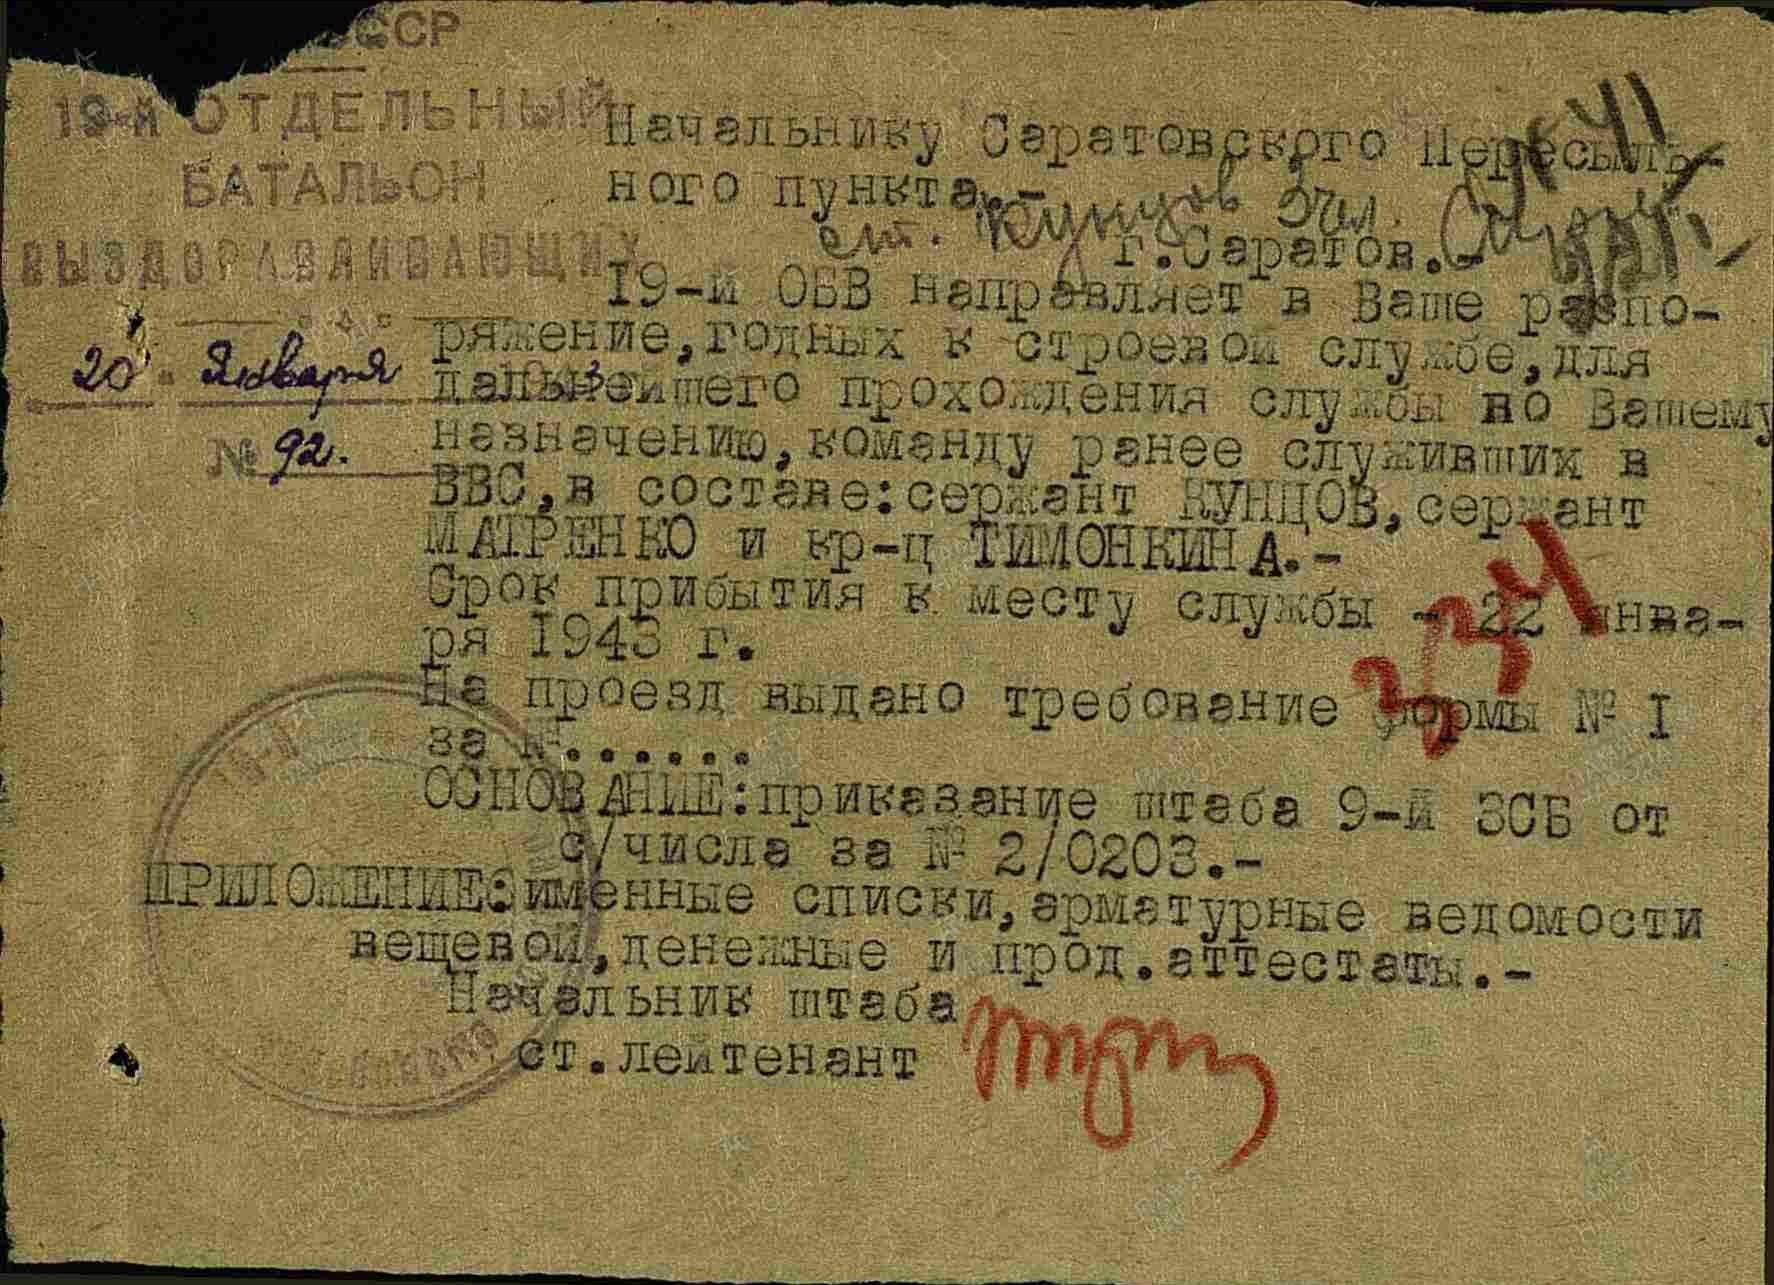 СССР
19-й ОТДЕЛЬНЫЙ
БАТАЛЬОН
ВЫЗДОРАВЛИВАЮЩИХ
20 Января
№ 92.
Начальнику Саратовского Пересыль-
ного пункта.-
ст. Кунцов 3 чел.
г.Саратов.-
19-й ОБВ направляет в Ваше распо-
ряжение,годных к строевой службе,для
дальнейшего прохождения службы по Вашему
назначению,команду ранее служивших в
ВВС,в составе:сержант КУНЦОВ,сержант
МАТРЕНКО и кр-ц ТИМОНКИНА.-
Срок прибытия к месту службы - 22 янва-
ря 1943 г.
На проезд выдано требование формы № I
за №......
ОСНОВАНИЕ:приказание штаба 9-й ЗСБ от
с/числа за № 2/0203.-
ПРИЛОЖЕНИЕ:именные списки,арматурные ведомости
вещевой,денежные и прод.аттестаты.-
Начальник штаба
ст.лейтенант